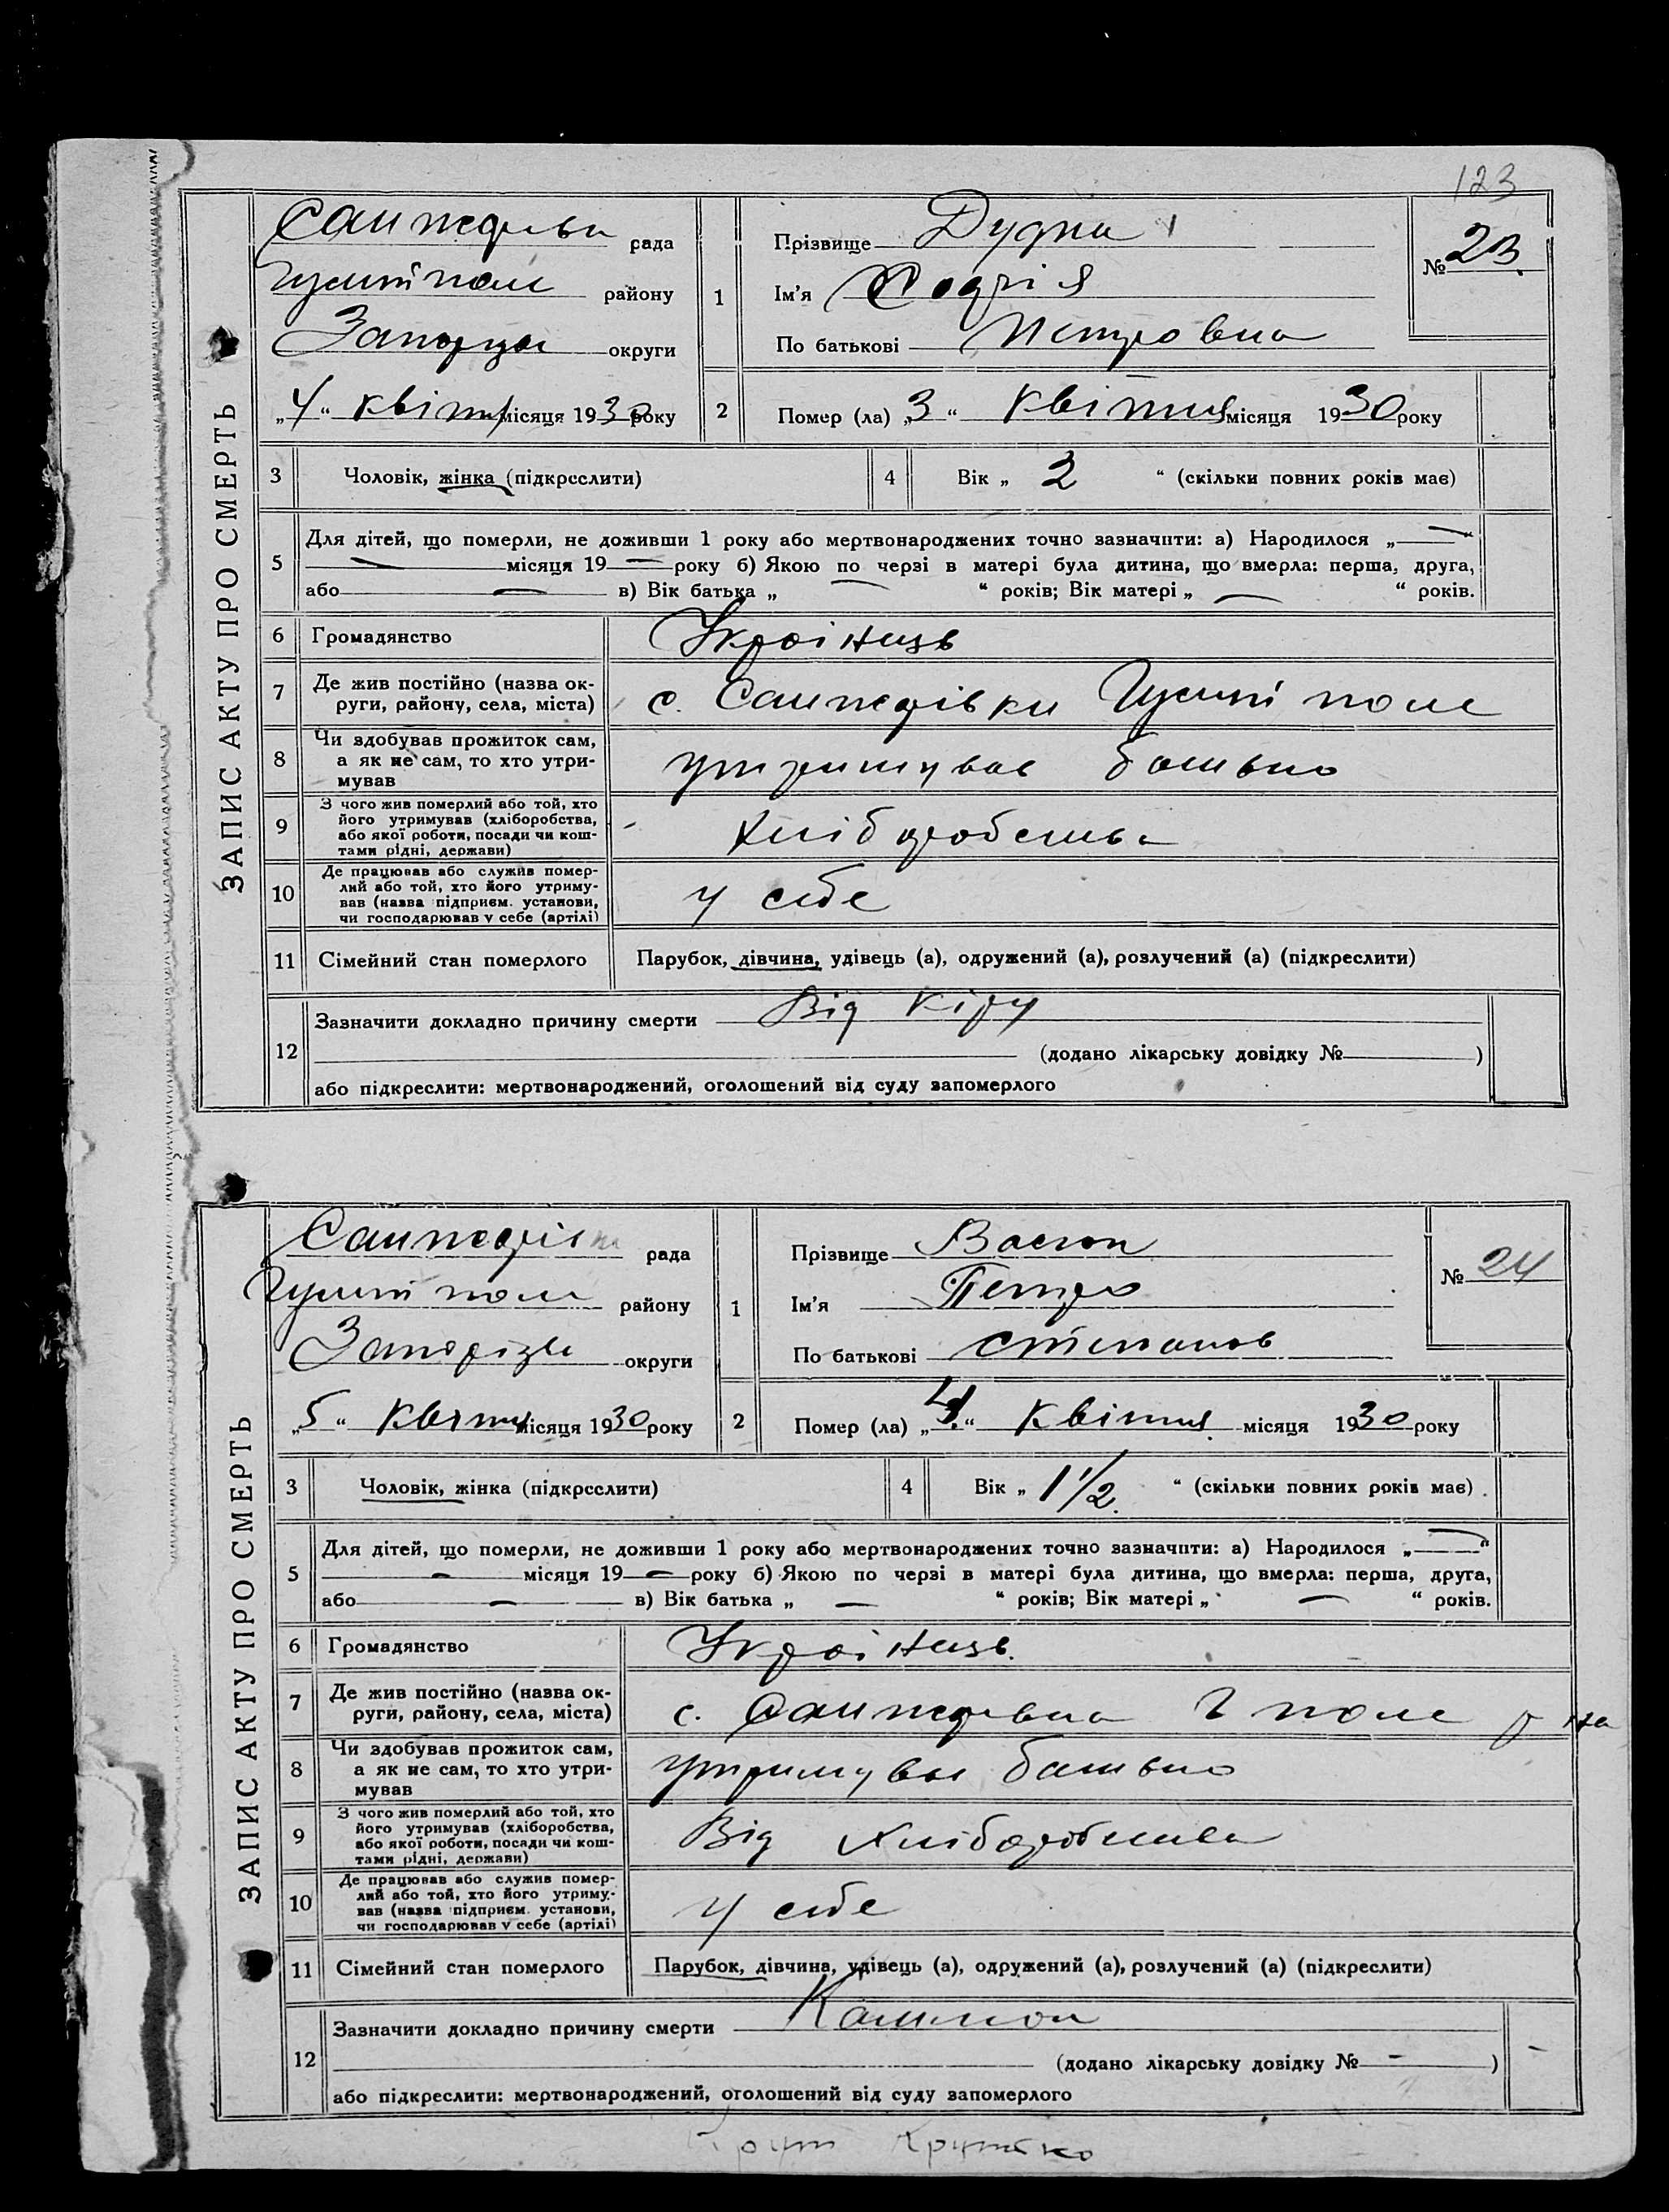 123
ЗАПИС АКТУ ПРО СМЕРТЬ
рада
району
Запорізьк округи
„4“ квітня місяця 1930 року
1 Прізвище Дудка
Ім'я Софія
По батькові Петровна
№ 23.
2 Помер (ла) „3“ Квітня місяця 1930 року
3 Чоловік, жінка (підкреслити)
4 Вік „ 2 “ (скільки повних років має)
5 Для дітей, що померли, не доживши 1 року або мертвонароджених точно зазначити: а) Народилося „—“
— місяця 19— року б) Якою по черзі в матері була дитина, що вмерла: перша, друга,
або — в) Вік батька „ — “ років; Вік матері „ — “ років.
6 Громадянство Українець
7 Де жив постійно (назва ок-
руги, району, села, міста) с. поле
8 Чи здобував прожиток сам,
а як не сам, то хто утри-
мував утримував батько
9 З чого жив померлий або той, хто
його утримував (хліборобства,
або якої роботи, посади чи кош-
тами рідні, держави) Хліборобства
10 Де працював або служив помер-
лий або той, хто його утриму-
вав (назва підприєм. установи,
чи господарював у себе (артілі) у себе
11 Сімейний стан померлого Парубок, дівчина, удівець (а), одружений (а), розлучений (а) (підкреслити)
12 Зазначити докладно причину смерти Від Кіру
(додано лікарську довідку № )
або підкреслити: мертвонароджений, оголошений від суду запомерлого
ЗАПИС АКТУ ПРО СМЕРТЬ
рада
поле району
Запорізьк округи
„5“ Квітня місяця 1930 року
1 Прізвище
Ім'я Петро
По батькові Степанов
№ 24
2 Помер (ла) „4“ Квітня місяця 1930 року
3 Чоловік, жінка (підкреслити)
4 Вік „ 1 1/2. “ (скільки повних років має)
5 Для дітей, що померли, не доживши 1 року або мертвонароджених точно зазначити: а) Народилося „—“
— місяця 19— року б) Якою по черзі в матері була дитина, що вмерла: перша, друга,
або — в) Вік батька „ — “ років; Вік матері „ — “ років.
6 Громадянство Українець.
7 Де жив постійно (назва ок-
руги, району, села, міста) с. Г поле р на
8 Чи здобував прожиток сам,
а як не сам, то хто утри-
мував утримував батько
9 З чого жив померлий або той, хто
його утримував (хліборобства,
або якої роботи, посади чи кош-
тами рідні, держави) Від хліборобства
10 Де працював або служив помер-
лий або той, хто його утриму-
вав (назва підприєм. установи,
чи господарював у себе (артілі) у себе
11 Сімейний стан померлого Парубок, дівчина, удівець (а), одружений (а), розлучений (а) (підкреслити)
12 Зазначити докладно причину смерти
(додано лікарську довідку № — )
або підкреслити: мертвонароджений, оголошений від суду запомерлого